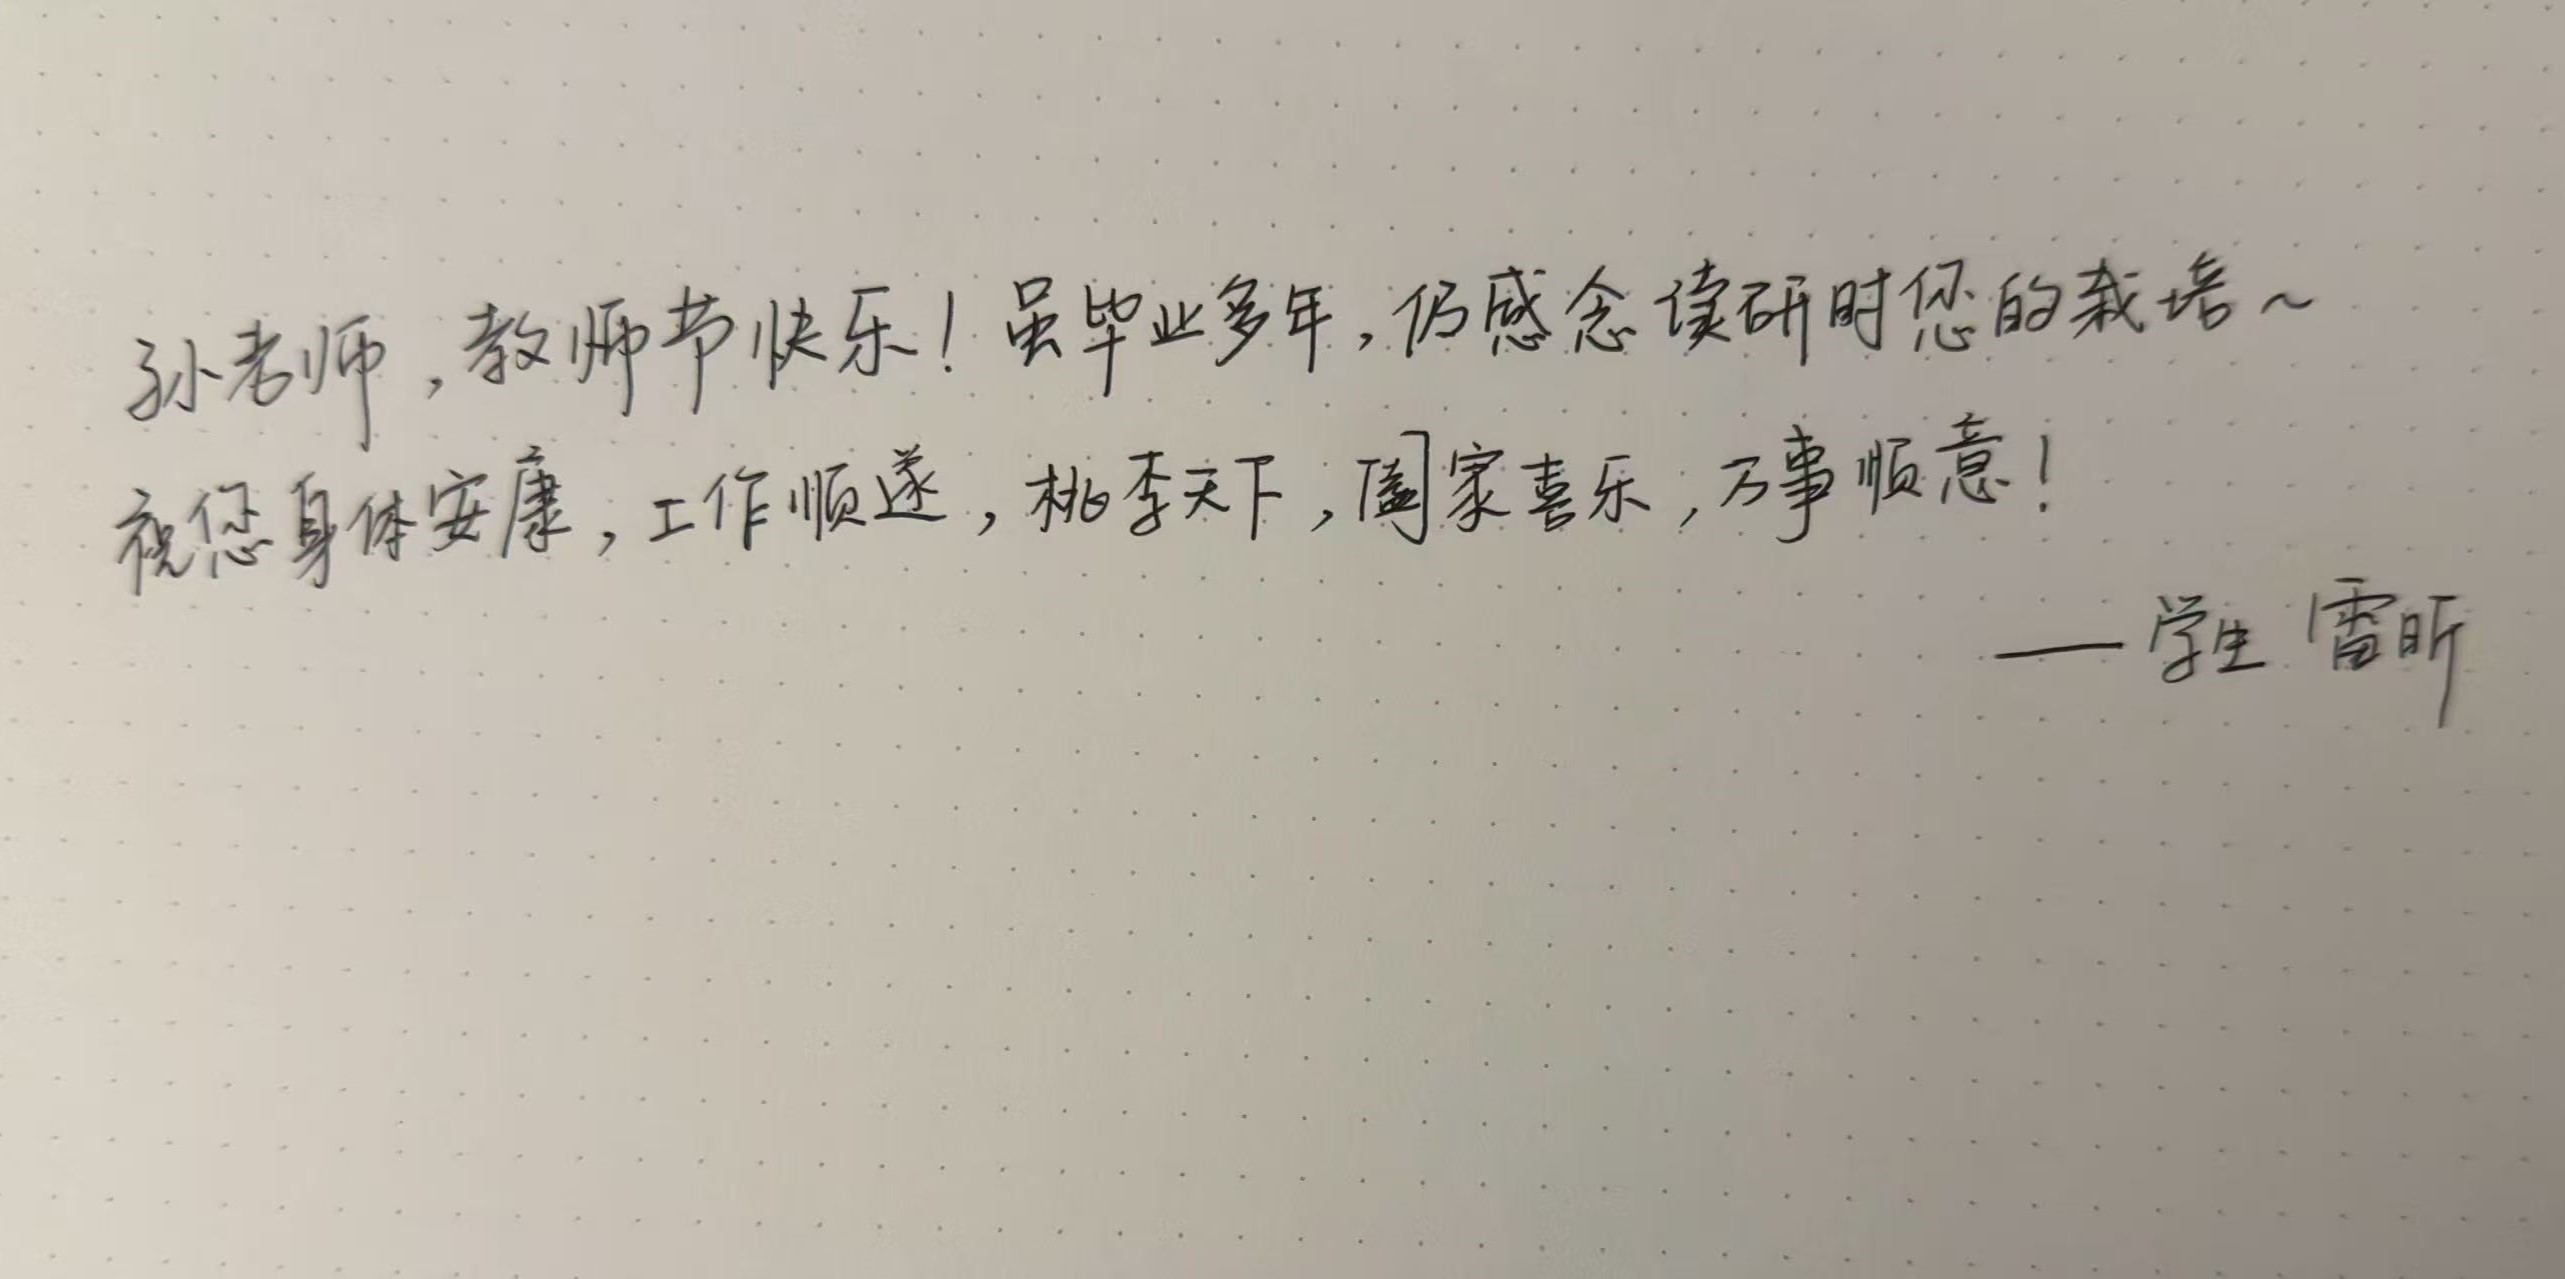 孙老师，教师节快乐！虽毕业多年，仍感念读研时您的栽培~
祝您身体安康，工作顺遂，桃李天下，阖家喜乐，万事顺意！
——学生 雷昕